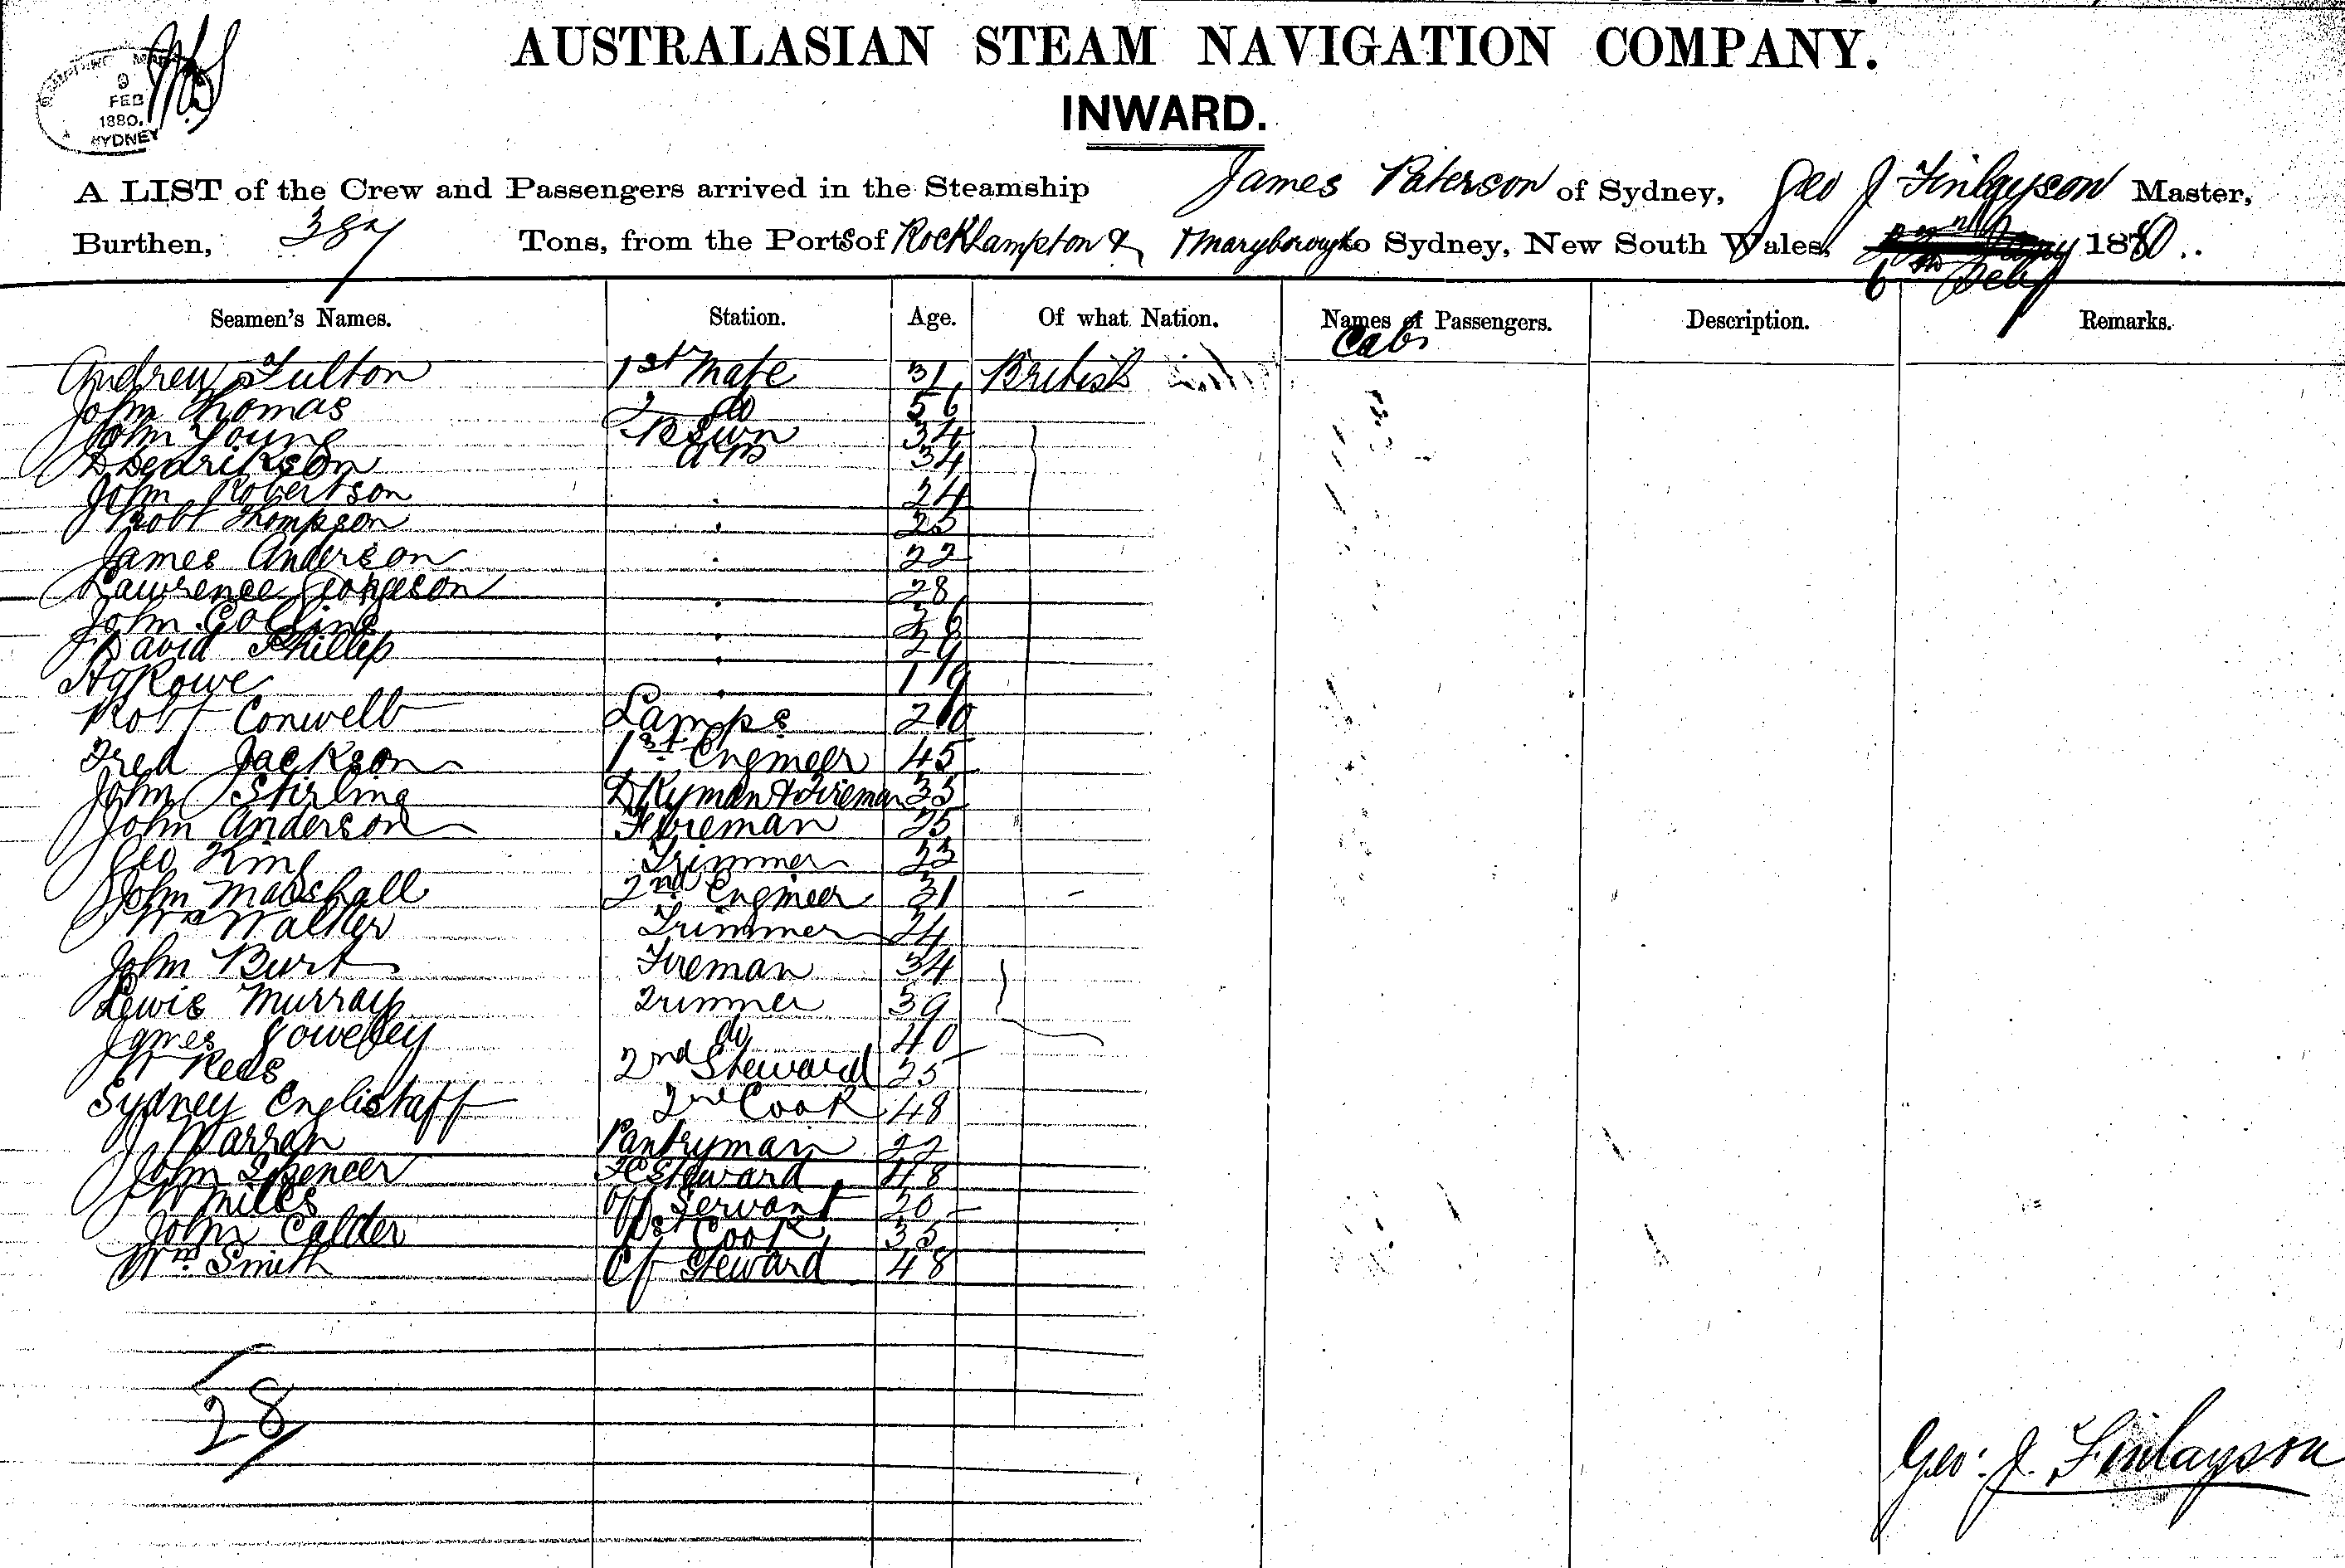 AUSTRALASIAN STEAM NAVIGATION COMPANY.
INWARD.
9
FEB
1880.
SYDNEY
A LIST of the Crew and Passengers arrived in the Steamship James Paterson of Sydney, Geo J Finlayson Master,
Burthen, Tons, from the Ports of Rockhampton & Maryboro to Sydney, New South Wales, 1880
6th Feby
Seamen's Names. Station. Age. Of what Nation. Names of Passengers. Description. Remarks.
Cabs
Andrew Fulton 1st Mate 31 British
John Thomas 2 do 56
John Young BSwn 34
D Hedrikson AB 34
John Robertson 24
Robt Thompson 25
James Anderson 22
Lawrence 28
John Collins 26
David Phillip 29
Hy Rowe 19
Robt Conwell Lamps 20
Fred Jackson 1st Engineer 45
John Stirling DKyman & Fireman 33
John Anderson Fireman 25
Geo King Trimmer 23
John Marshall 2nd Engineer 31
Wm Walker Trimmer 24
John Burt Fireman 34
Lewis Murray Trimmer 39
James do 40
W Rees 2nd Steward 25
Sydney Englistaff 2nd Cook 48
J Warren Pantryman 22
John Spencer FC Steward 48
W Miles Off Servant 20
John Calder 1st Cook 35
Wm Smith Cf Steward 48
28
Geo: J. Finlayson